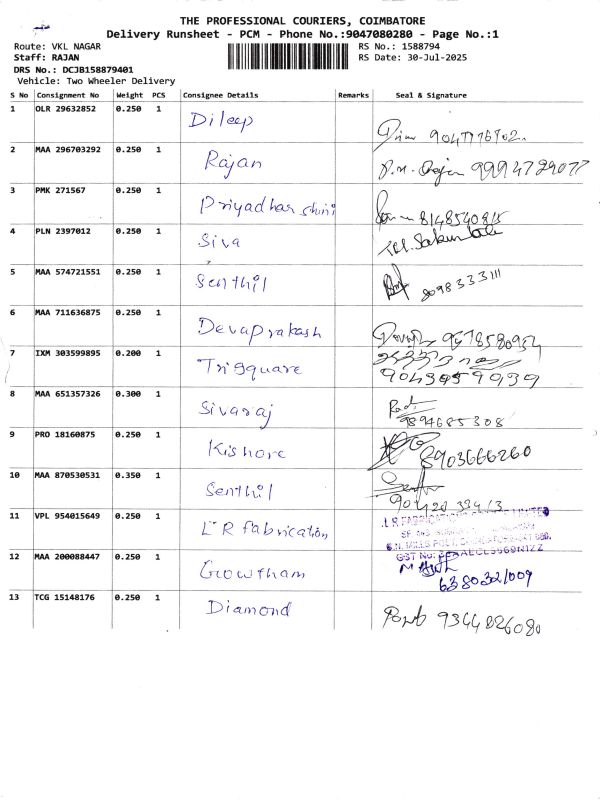 THE PROFESSIONAL COURIERS, COIMBATORE
Delivery Runsheet - PCM - Phone No.:9047080280 - Page No.:1
Route: VKL NAGAR RS No.: 1588794
Staff: RAJAN RS Date: 30-Jul-2025
DRS No.: DCJB158879401
Vehicle: Two Wheeler Delivery
S No Consignment No Weight PCS Consignee Details Remarks Seal & Signature
1 OLR 29632852 0.250 1 Dileep
2 MAA 296703292 0.250 1 Rajan 9994729077
3 PMK 271567 0.250 1 Priyadharshini 8148540815
4 PLN 2397012 0.250 1 Siva
5 MAA 574721551 0.250 1 Senthil 8098333111
6 MAA 711636875 0.250 1 Devaprakash
7 IXM 303599895 0.200 1 Trigquare
8 MAA 651357326 0.300 1 Sivaraj 9894685308
9 PRO 18160875 0.250 1 Kishore 8903666260
10 MAA 870530531 0.350 1 Senthil
11 VPL 954015649 0.250 1 L R fabrication
12 MAA 200088447 0.250 1 Growtham 6380321009
13 TCG 15148176 0.250 1 Diamond 9344826080